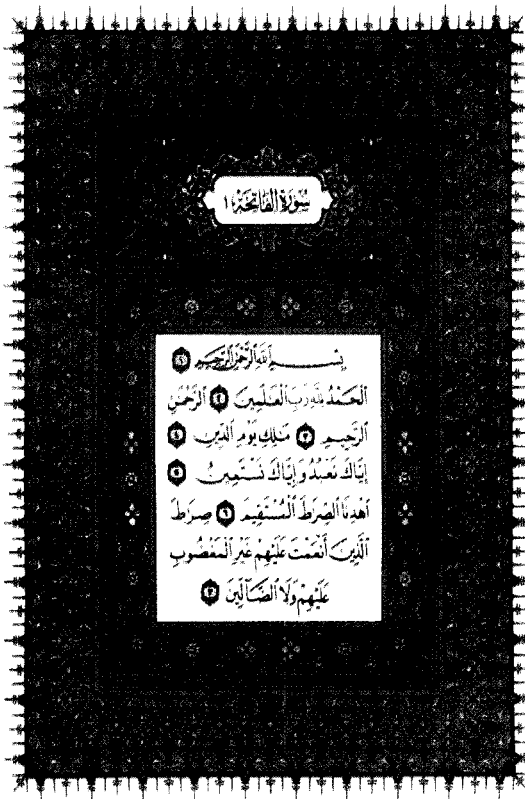 سُورَةُ الفَاتِحَةِ ١
بِسْمِ ٱللَّهِ ٱلرَّحْمَٰنِ ٱلرَّحِيمِ ١
ٱلْحَمْدُ لِلَّهِ رَبِّ ٱلْعَٰلَمِينَ ٢ ٱلرَّحْمَٰنِ
ٱلرَّحِيمِ ٣ مَٰلِكِ يَوْمِ ٱلدِّينِ ٤
إِيَّاكَ نَعْبُدُ وَإِيَّاكَ نَسْتَعِينُ ٥
ٱهْدِنَا ٱلصِّرَٰطَ ٱلْمُسْتَقِيمَ ٦ صِرَٰطَ
ٱلَّذِينَ أَنْعَمْتَ عَلَيْهِمْ غَيْرِ ٱلْمَغْضُوبِ
عَلَيْهِمْ وَلَا ٱلضَّآلِّينَ